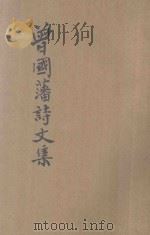 曾國藩詩文集
www.mtoou.info